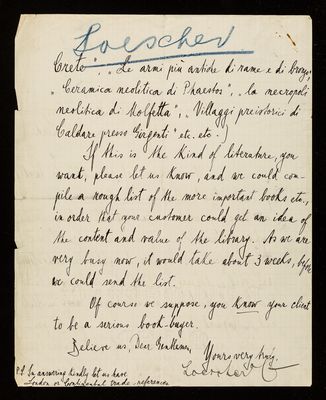 Loescher
Creto", "Le armi più antiche di rame e di bronzo",
"Ceramica neolitica di Phaestos", "La necropoli
neolitica di Molfetta", "Villaggi preistorici di
Caldare presso Girgenti" etc. etc.)
If this is the kind of literature, you
want, please let us know, and we could com-
pile a rough list of the more important books etc.,
in order that your customer could get an idea of
the content and value of the library. As we are
very busy now, it would take about 3 weeks, before
we could send the list.
Of course we suppose, you know your client
to be a serious book-buyer.
Believe us, Dear Gentlemen,
Yours very truly,
Loescher & Co
P.S. In answering kindly let us have
London or Continental trade-references